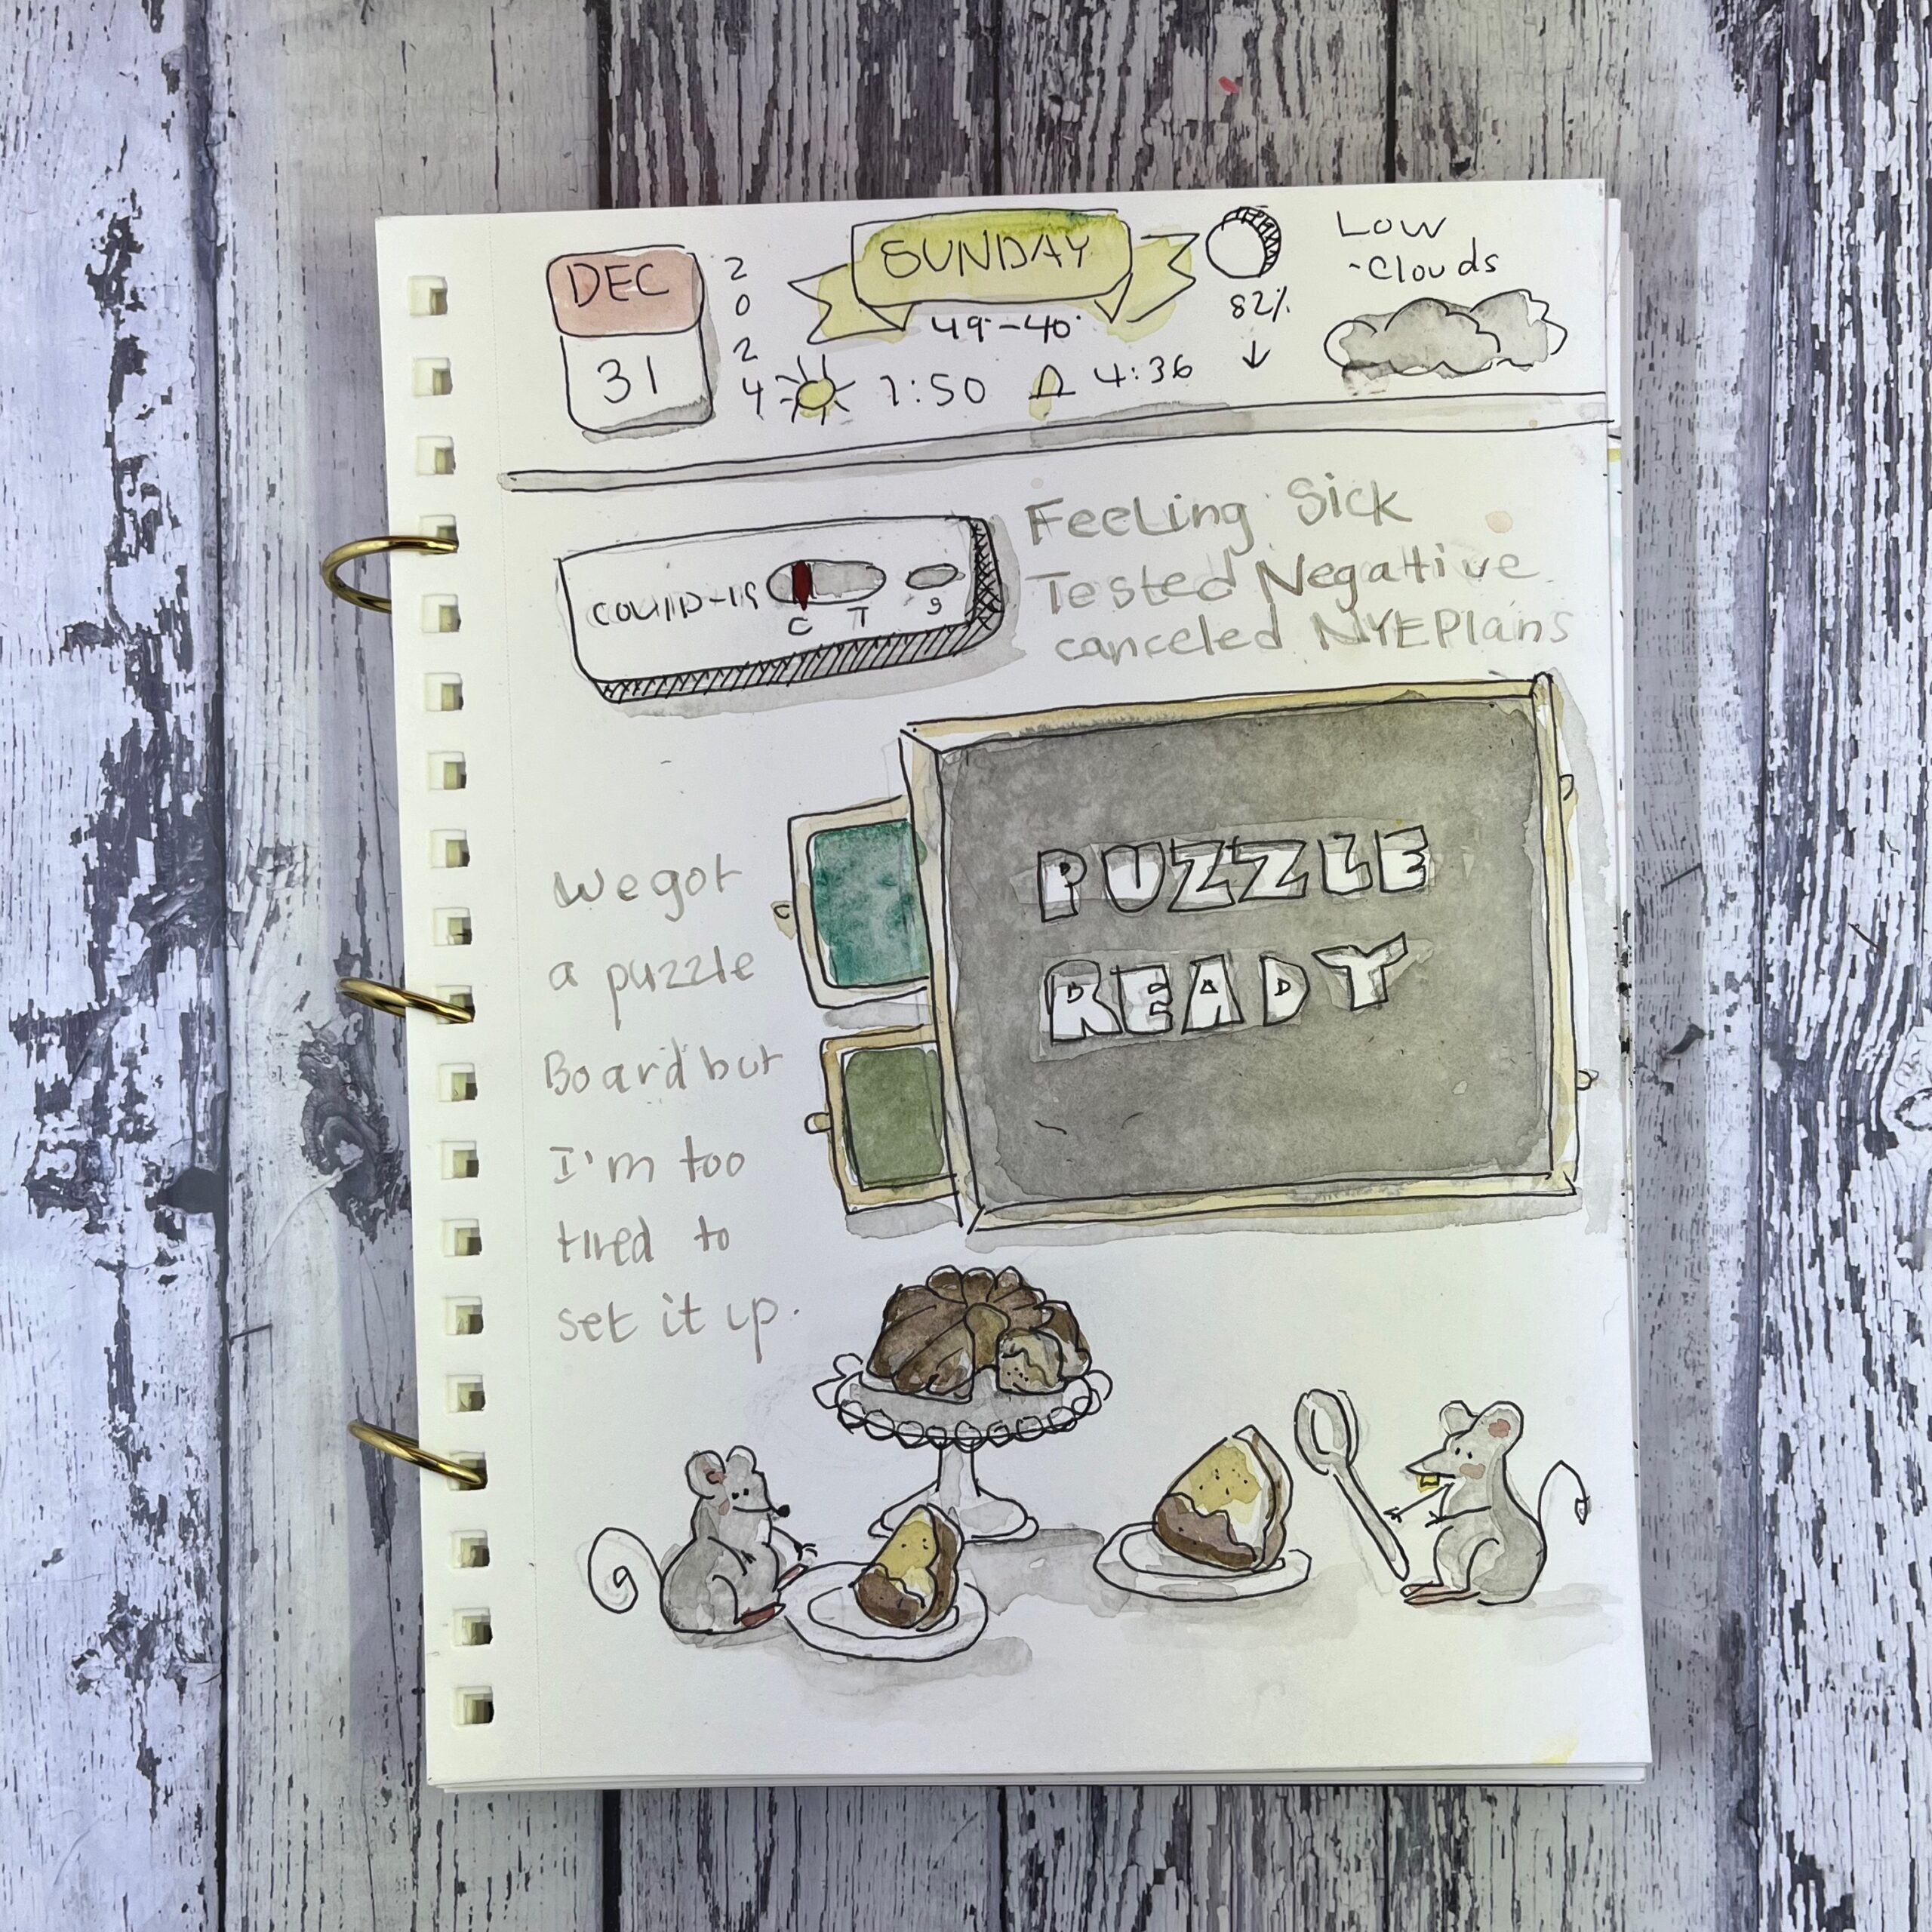 DEC
31
2
0
2
4
SUNDAY
49°-40°
7:50
4:36
82%
Low
-Clouds
COVID-19
C T S
Feeling Sick
Tested Negative
canceled NYE Plans
PUZZLE
READY
We got
a puzzle
Board but
I'm too
tired to
set it up.